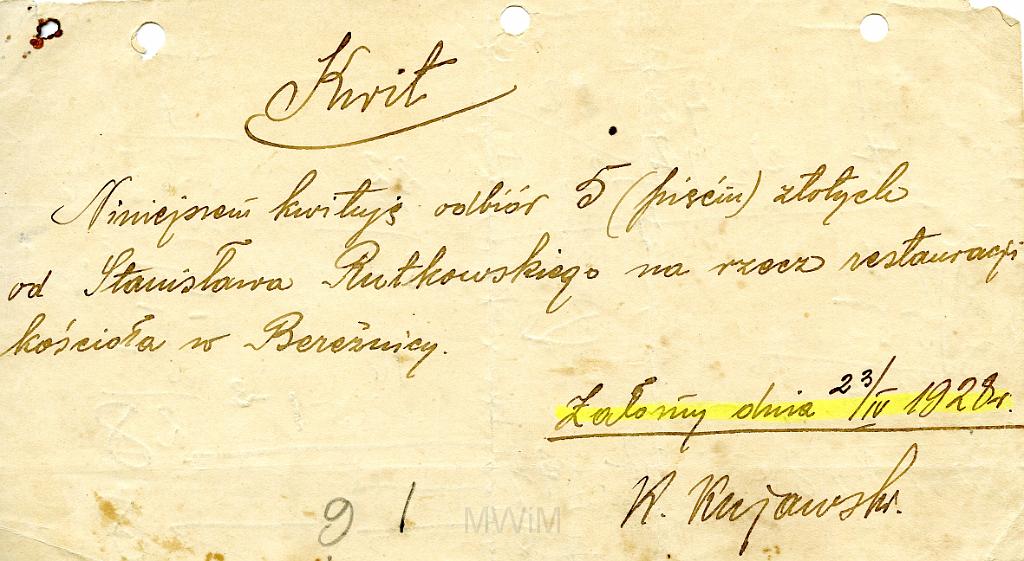 Kwit
Niniejszem kwituję odbiór 5 (pięciu) złotych
od Stanisława Rutkowskiego na rzecz restauracji
kościoła w Bereźnicy.
Załomy dnia 23/IV 1928 r.
K. Kujawski.
9 1
MWiM